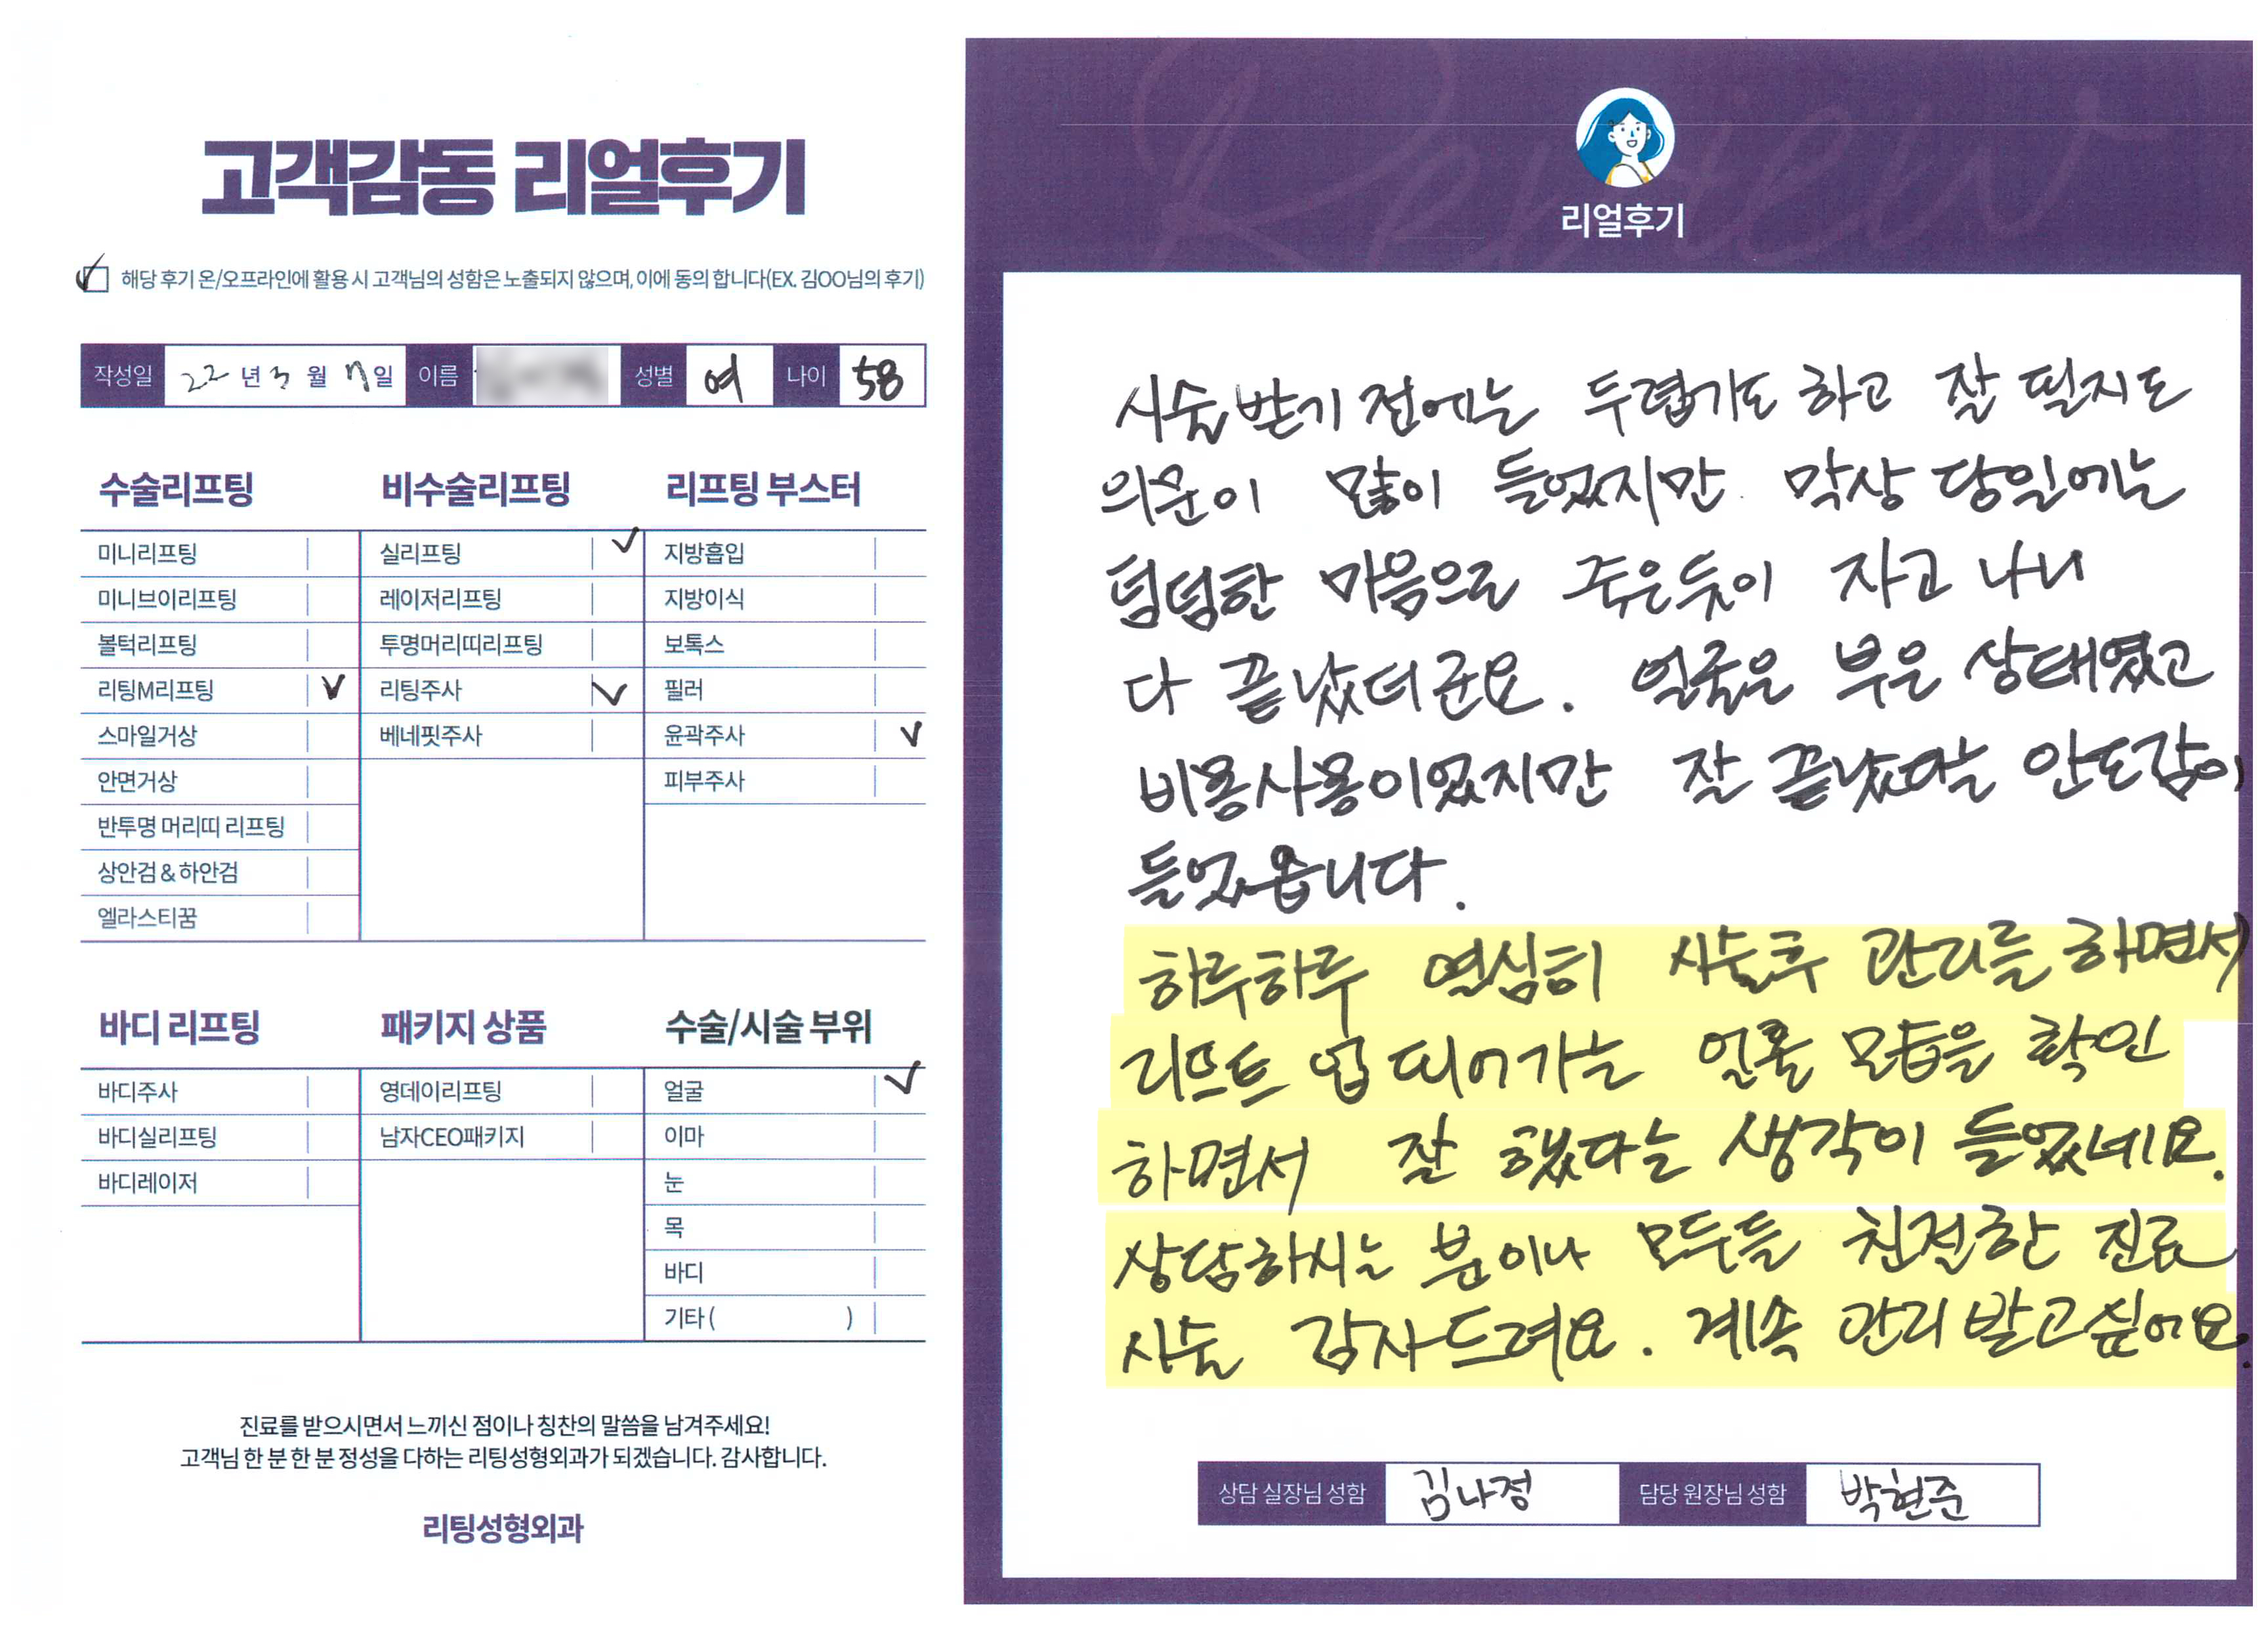 고객감동 리얼후기
해당 후기 온/오프라인에 활용 시 고객님의 성함은 노출되지 않으며, 이에 동의 합니다(EX. 김OO님의 후기)
작성일 22년 3월 7일 이름 성별 여 나이 58
수술리프팅
미니리프팅
미니브이리프팅
볼턱리프팅
리팅M리프팅
스마일거상
안면거상
반투명 머리띠 리프팅
상안검 & 하안검
엘라스티꿈
비수술리프팅
실리프팅
레이저리프팅
투명머리띠리프팅
리팅주사
베네핏주사
리프팅 부스터
지방흡입
지방이식
보톡스
필러
윤곽주사
피부주사
바디 리프팅
바디주사
바디실리프팅
바디레이저
패키지 상품
영데이리프팅
남자CEO패키지
수술/시술 부위
얼굴
이마
눈
목
바디
기타 ( )
진료를 받으시면서 느끼신 점이나 칭찬의 말씀을 남겨주세요!
고객님 한 분 한 분 정성을 다하는 리팅성형외과가 되겠습니다. 감사합니다.
리팅성형외과
Review
리얼후기
시술받기 전에는 두렵기도 하고 잘 띨지도
의문이 많이 들었지만 막상 당일에는
덤덤한 마음으로 죽은듯이 자고 나니
다 끝났더군요. 얼굴은 부은 상태였고
비몽사몽이었지만 잘 끝났다는 안도감이
들었읍니다.
하루하루 열심히 시술후 관리를 하면서
리프트 업 띄어가는 얼굴 모습을 확인
하면서 잘 했다는 생각이 들었네요.
상담하시는 분이나 모두들 친절한 진료
시술 감사드려요. 계속 관리 받고싶어요.
상담 실장님 성함 김나정 담당 원장님 성함 박현준